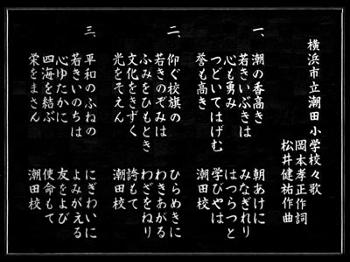 横浜市立潮田小学校々歌
岡本孝正作詞
松井健祐作曲
一、
潮の香高き 朝あけに
若きいぶきは みなぎれり
心も勇み はつらつと
つどいてはげむ 学びやは
誉も高き 潮田校
二、
仰ぐ校旗の ひらめきに
若きのぞみは わきあがる
ふみをひもとき わざをねり
文化をきずく 誇もて
光をそえん 潮田校
三、
平和のふねの にぎわいに
若きいのちは よみがえる
心ゆたかに 友をよび
四海を結ぶ 使命もて
栄をまさん 潮田校